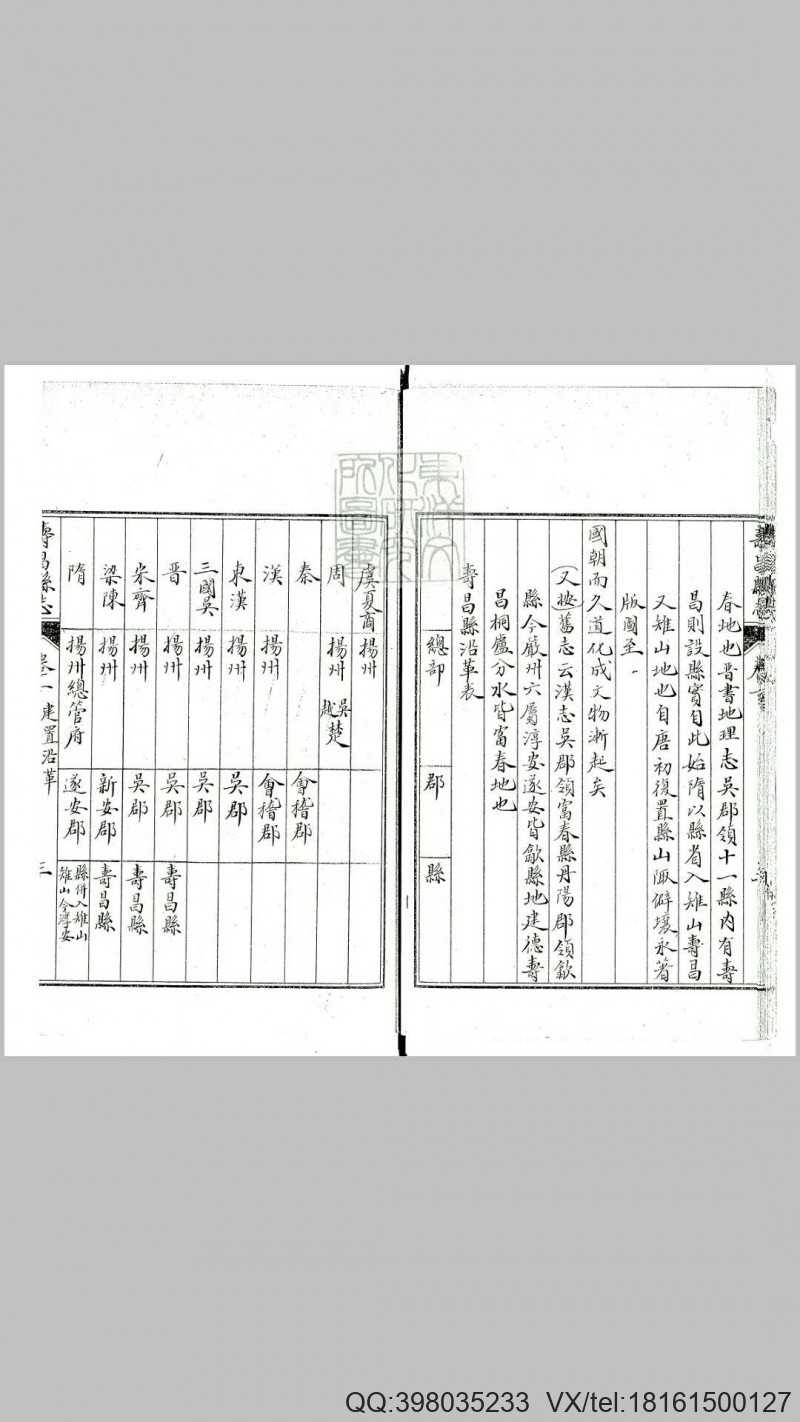 春地也晋書地理志吳郡領十一縣内有壽
昌則設縣實自此始隋以縣省入雉山壽昌
又雉山地也自唐初復置縣山陬僻壤永著
版圖至
國朝而久道化成文物漸起矣
又按舊志云漢志吳郡領富春縣丹陽郡領歙
縣今嚴州六屬淳安遂安皆歙縣地建德壽
昌桐廬分水皆富春地也
壽昌縣沿革表
總部 郡 縣
虞夏商 揚州
周 揚州 吳越楚
秦 會稽郡
漢 揚州 會稽郡
東漢 揚州 吳郡
三國吳 揚州 吳郡
晋 揚州 吳郡 壽昌縣
宋齊 揚州 吳郡 壽昌縣
梁陳 揚州 新安郡 壽昌縣
隋 揚州總管府 遂安郡 縣併入雉山雉山今淳安
壽昌縣志 卷一 建置沿革 三
QQ:398035233 VX/tel:18161500127